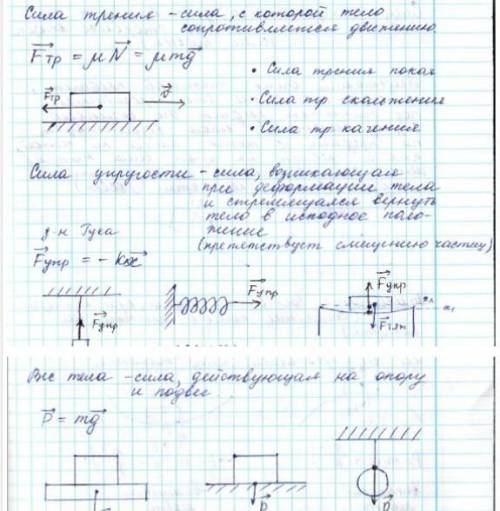 Сила трения - сила, с которой тело
сопротивляется движению
F⃗тр = μN⃗ = μmg⃗
• Сила трения покоя
F⃗тр
v⃗
• Сила тр скольжения
• Сила тр качения
Сила упругости - сила, возникающая
при деформации тела
и стремящаяся вернуть
тело в исходное поло-
жение
з-н Гука
(препятствует смещению частиц)
F⃗упр = - kx⃗
F⃗упр
F⃗упр
F⃗упр
F⃗тяж
Вес тела - сила, действующая на опору
и подвес
P⃗ = mg⃗
P⃗
P⃗